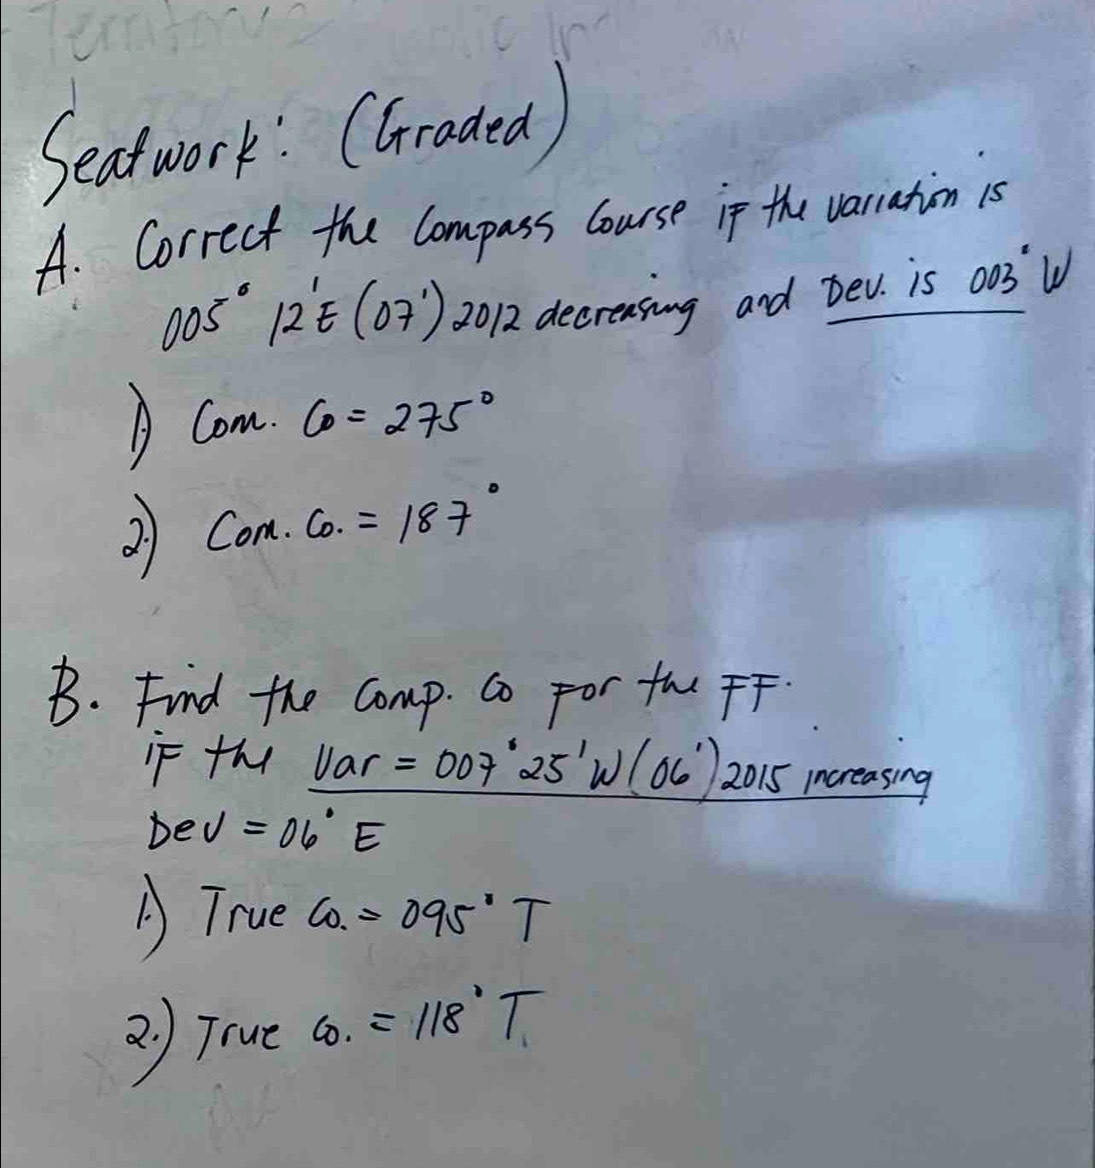 Seatwork: (Graded)
A. Correct the Compass Course if the variation is
005° 12'E (07') 2012 decreasing and Dev. is 003° W
1) Com. Co = 275°
2.) Com. Co. = 187°
B. Find the Comp. Co For the FF.
if the Var = 007° 25' W (06') 2015 increasing
Dev = 06° E
1.) True Co. = 095° T
2.) True Co. = 118° T.